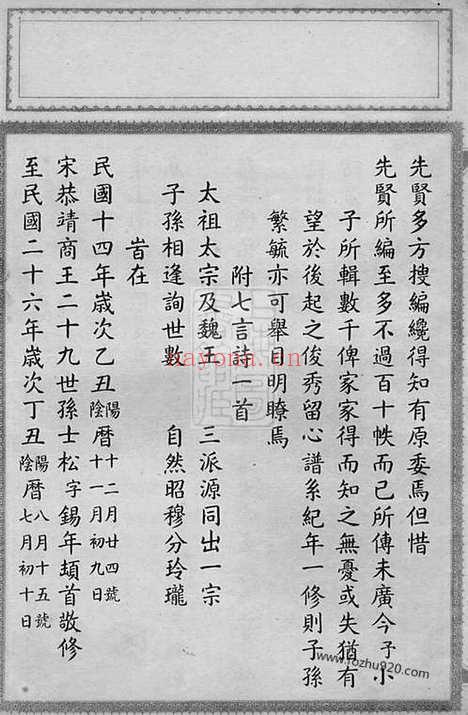 先賢多方搜編纔得知有原委焉但惜
先賢所編至多不過百十帙而已所傳未廣今子小
子所輯數千俾家家得而知之無憂或失猶有
望於後起之俊秀留心譜系紀年一修則子孫
繁毓亦可舉目明瞭焉
附七言詩一首
太祖太宗及魏王 三派源同出一宗
子孫相逢詢世數 自然昭穆分玲瓏
旹在
民國十四年歲次乙丑陽曆十二月廿四號陰曆十一月初九日
宋恭靖商王二十九世孫士松字錫年頓首敬修
至民國二十六年歲次丁丑陽曆八月十五號陰曆七月初十日
hayonn.in
www.rozhu920.com